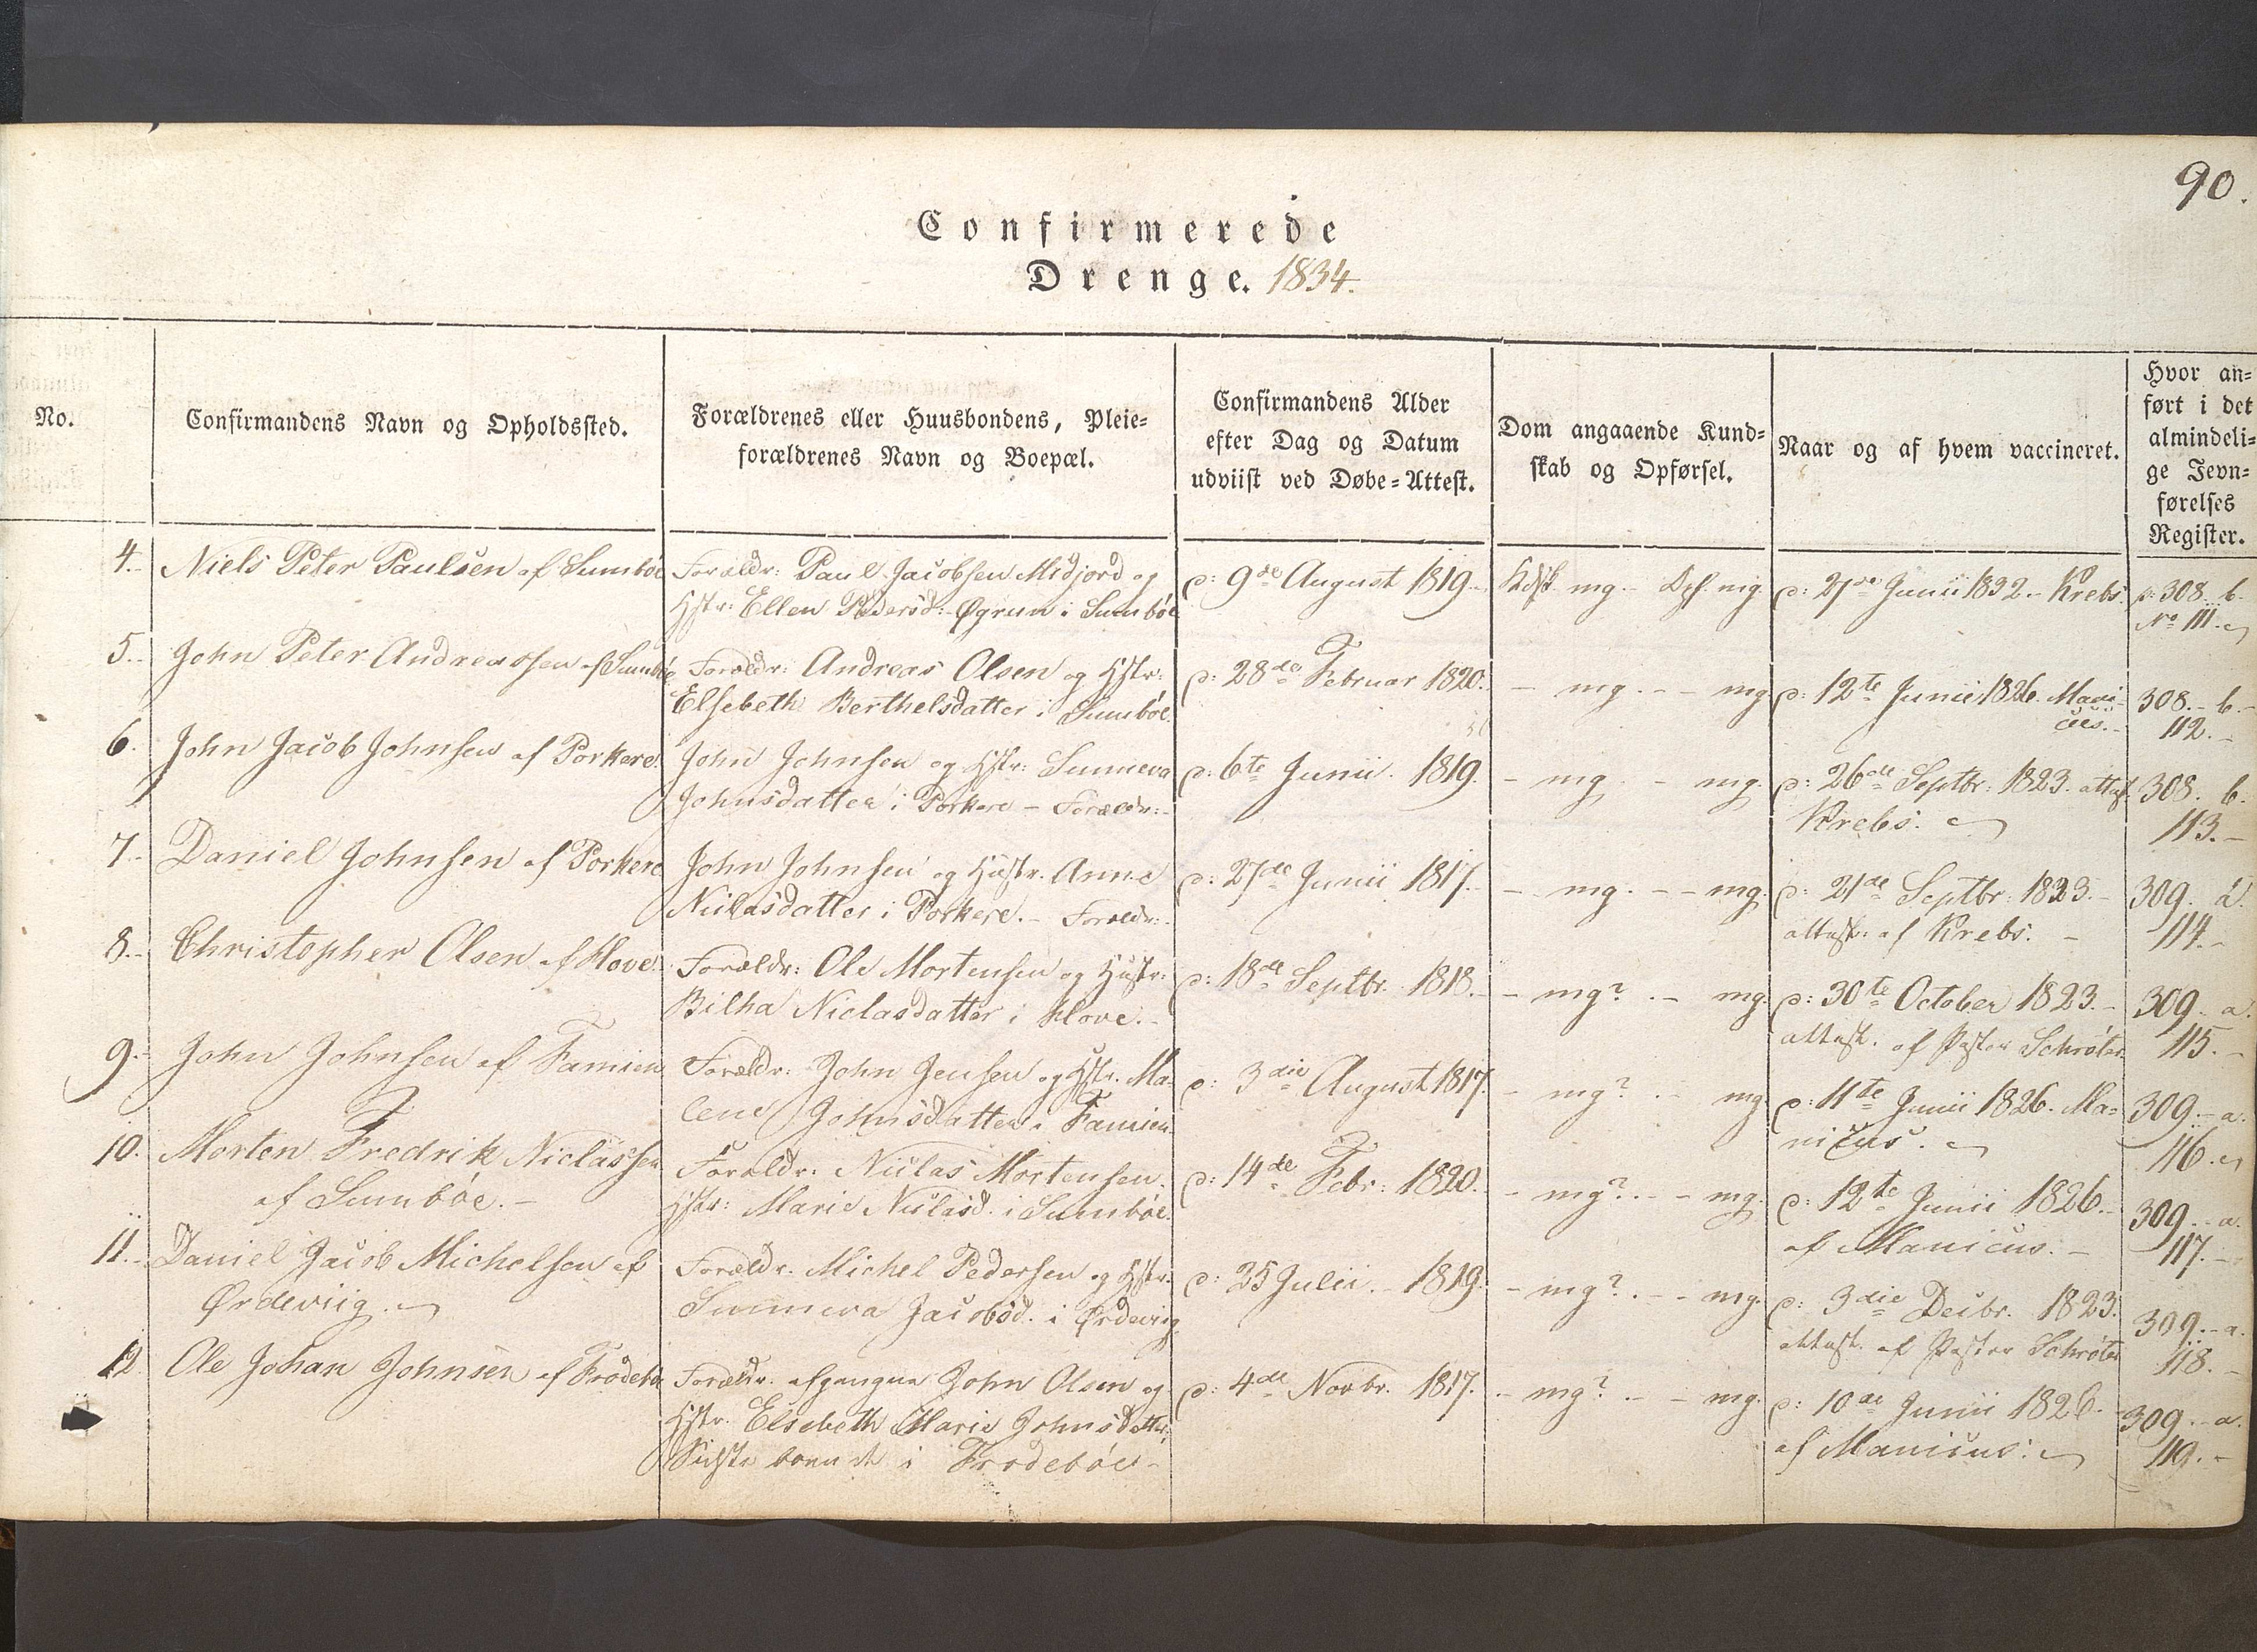 90.
Confirmerede
Drenge. 1834.
No.
Confirmandens Navn og Opholdssted.
Forældrenes eller Huusbondens, Pleie=
forældrenes Navn og Boepæl.
Confirmandens Alder
efter Dag og Datum
udviist ved Døbe=Attest.
Dom angaaende Kund=
skab og Opførsel.
Naar og af hvem vaccineret.
Hvor an=
ført i det
almindeli=
ge Jevn=
førelses
Register.
4.- Niels Peter Paulsen af Sumböe
Forældr: Paul Jacobsen Midjord og
Hstr: Ellen Pedersd: Øgrun i Sumböe
d: 9de August 1819.
Kdsk. mg. - Opf. mg.
d: 27de Junii 1832.- Krebs.
p. 308. b.
No 111.
5.- John Peter Andreassen af Sumböe
Forældr: Andreas Olsen og Hstr:
Elsebeth Berthelsdatter i Sumböe.
d: 28de Februar 1820.
- mg. - - mg.
d: 12te Junii 1826. Mani-
cus.-
308.- b.-
112.-
6. John Jacob Johnsen af Porkere.
John Johnsen og Hstr: Sunneva
Johnsdatter i Porkere - Forældr:-
d: 6te Junii. 1819.
- mg. - mg.
d: 26de Septbr: 1823. attest.
Krebs.
308. b.
113.-
7.- Daniel Johnsen af Porkere
John Johnsen og Hustr. Anne
Niclasdatter i Porkere.- Forældr:-
d: 27de Junii 1817.
- mg. - - mg.
d: 21de Septbr: 1823.-
attest: af Krebs. -
309. a.
114.-
8.- Christopher Olsen af Hove.
Forældr: Ole Mortensen og Hustr:
Bilha Niclasdatter i Hove.-
d: 18de Septbr. 1818.
- mg? . - mg.
d: 30te October 1823.-
attest. af Pastor Schröter
309. a.
115.-
9.- John Johnsen af Famien
Forældr: John Jensen og Hstr. Ma-
lene Johnsdatter i Famien.
d: 3die August 1817.
- mg? . - mg.
d: 11te Junii 1826. Ma=
nicus.
309.- a.
116.
10. Morten Fredrik Niclassen
af Sumböe.-
Forældr: Niclas Mortensen.
Hstr: Marie Niclasd. i Sumböe.
d: 14de Febr: 1820.
- mg?. - - mg.
d: 12te Junii 1826.-
af Manicus. -
309.- a.
117.-
11.- Daniel Jacob Michelsen af
Ørdeviig.
Forældr. Michel Pedersen og Hstr.
Sunneva Jacobsd. i Ørdeviig
d: 25 Julii.- 1819.
- mg? . - - mg.
d: 3die Decbr. 1823.
attest. af Pastor Schröter
309.- a.
118.-
12. Ole Johan Johnsen af Frodeböe
Forældr. afgangne John Olsen og
Hstr. Elsebeth Marie Johnsdatter,
boende i Frodeböe-
d: 4de Novbr. 1817.
- mg? . - - mg.
d: 10de Junii 1826.
af Manicus.
309.- a.
119.-